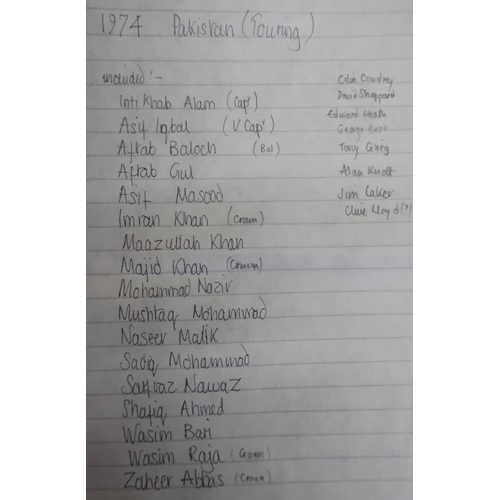 1974 Pakistan (Touring)
included :-
Intikhab Alam (Capt)
Asif Iqbal (V Capt)
Aftab Baloch (Bat)
Aftab Gul
Asif Masood
Imran Khan (Crown)
Maazullah Khan
Majid Khan (Crown)
Mohammad Nazir
Mushtaq Mohammad
Naseer Malik
Sadiq Mohammad
Sarfraz Nawaz
Shafiq Ahmed
Wasim Bari
Wasim Raja (Crown)
Zaheer Abbas (Crown)
Colin Cowdrey
David Sheppard
Edward Heath
George Best
Tony Greig
Alan Knott
Jim Laker
Clive Lloyd (?)